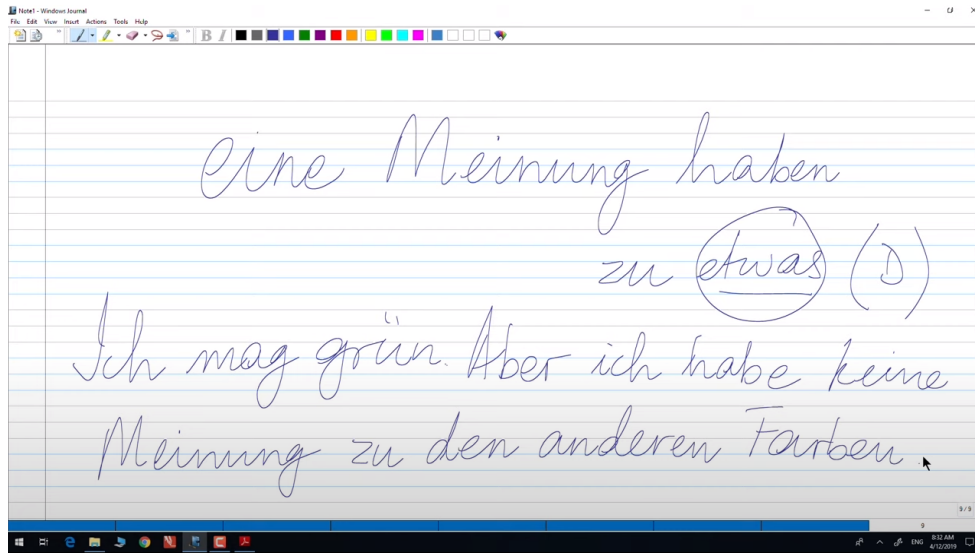 Note1 - Windows Journal
File Edit View Insert Actions Tools Help
B I
eine Meinung haben
zu etwas (D)
Ich mag grün. Aber ich habe keine
Meinung zu den anderen Farben.
9 / 9
9
ENG 8:32 AM
4/12/2019